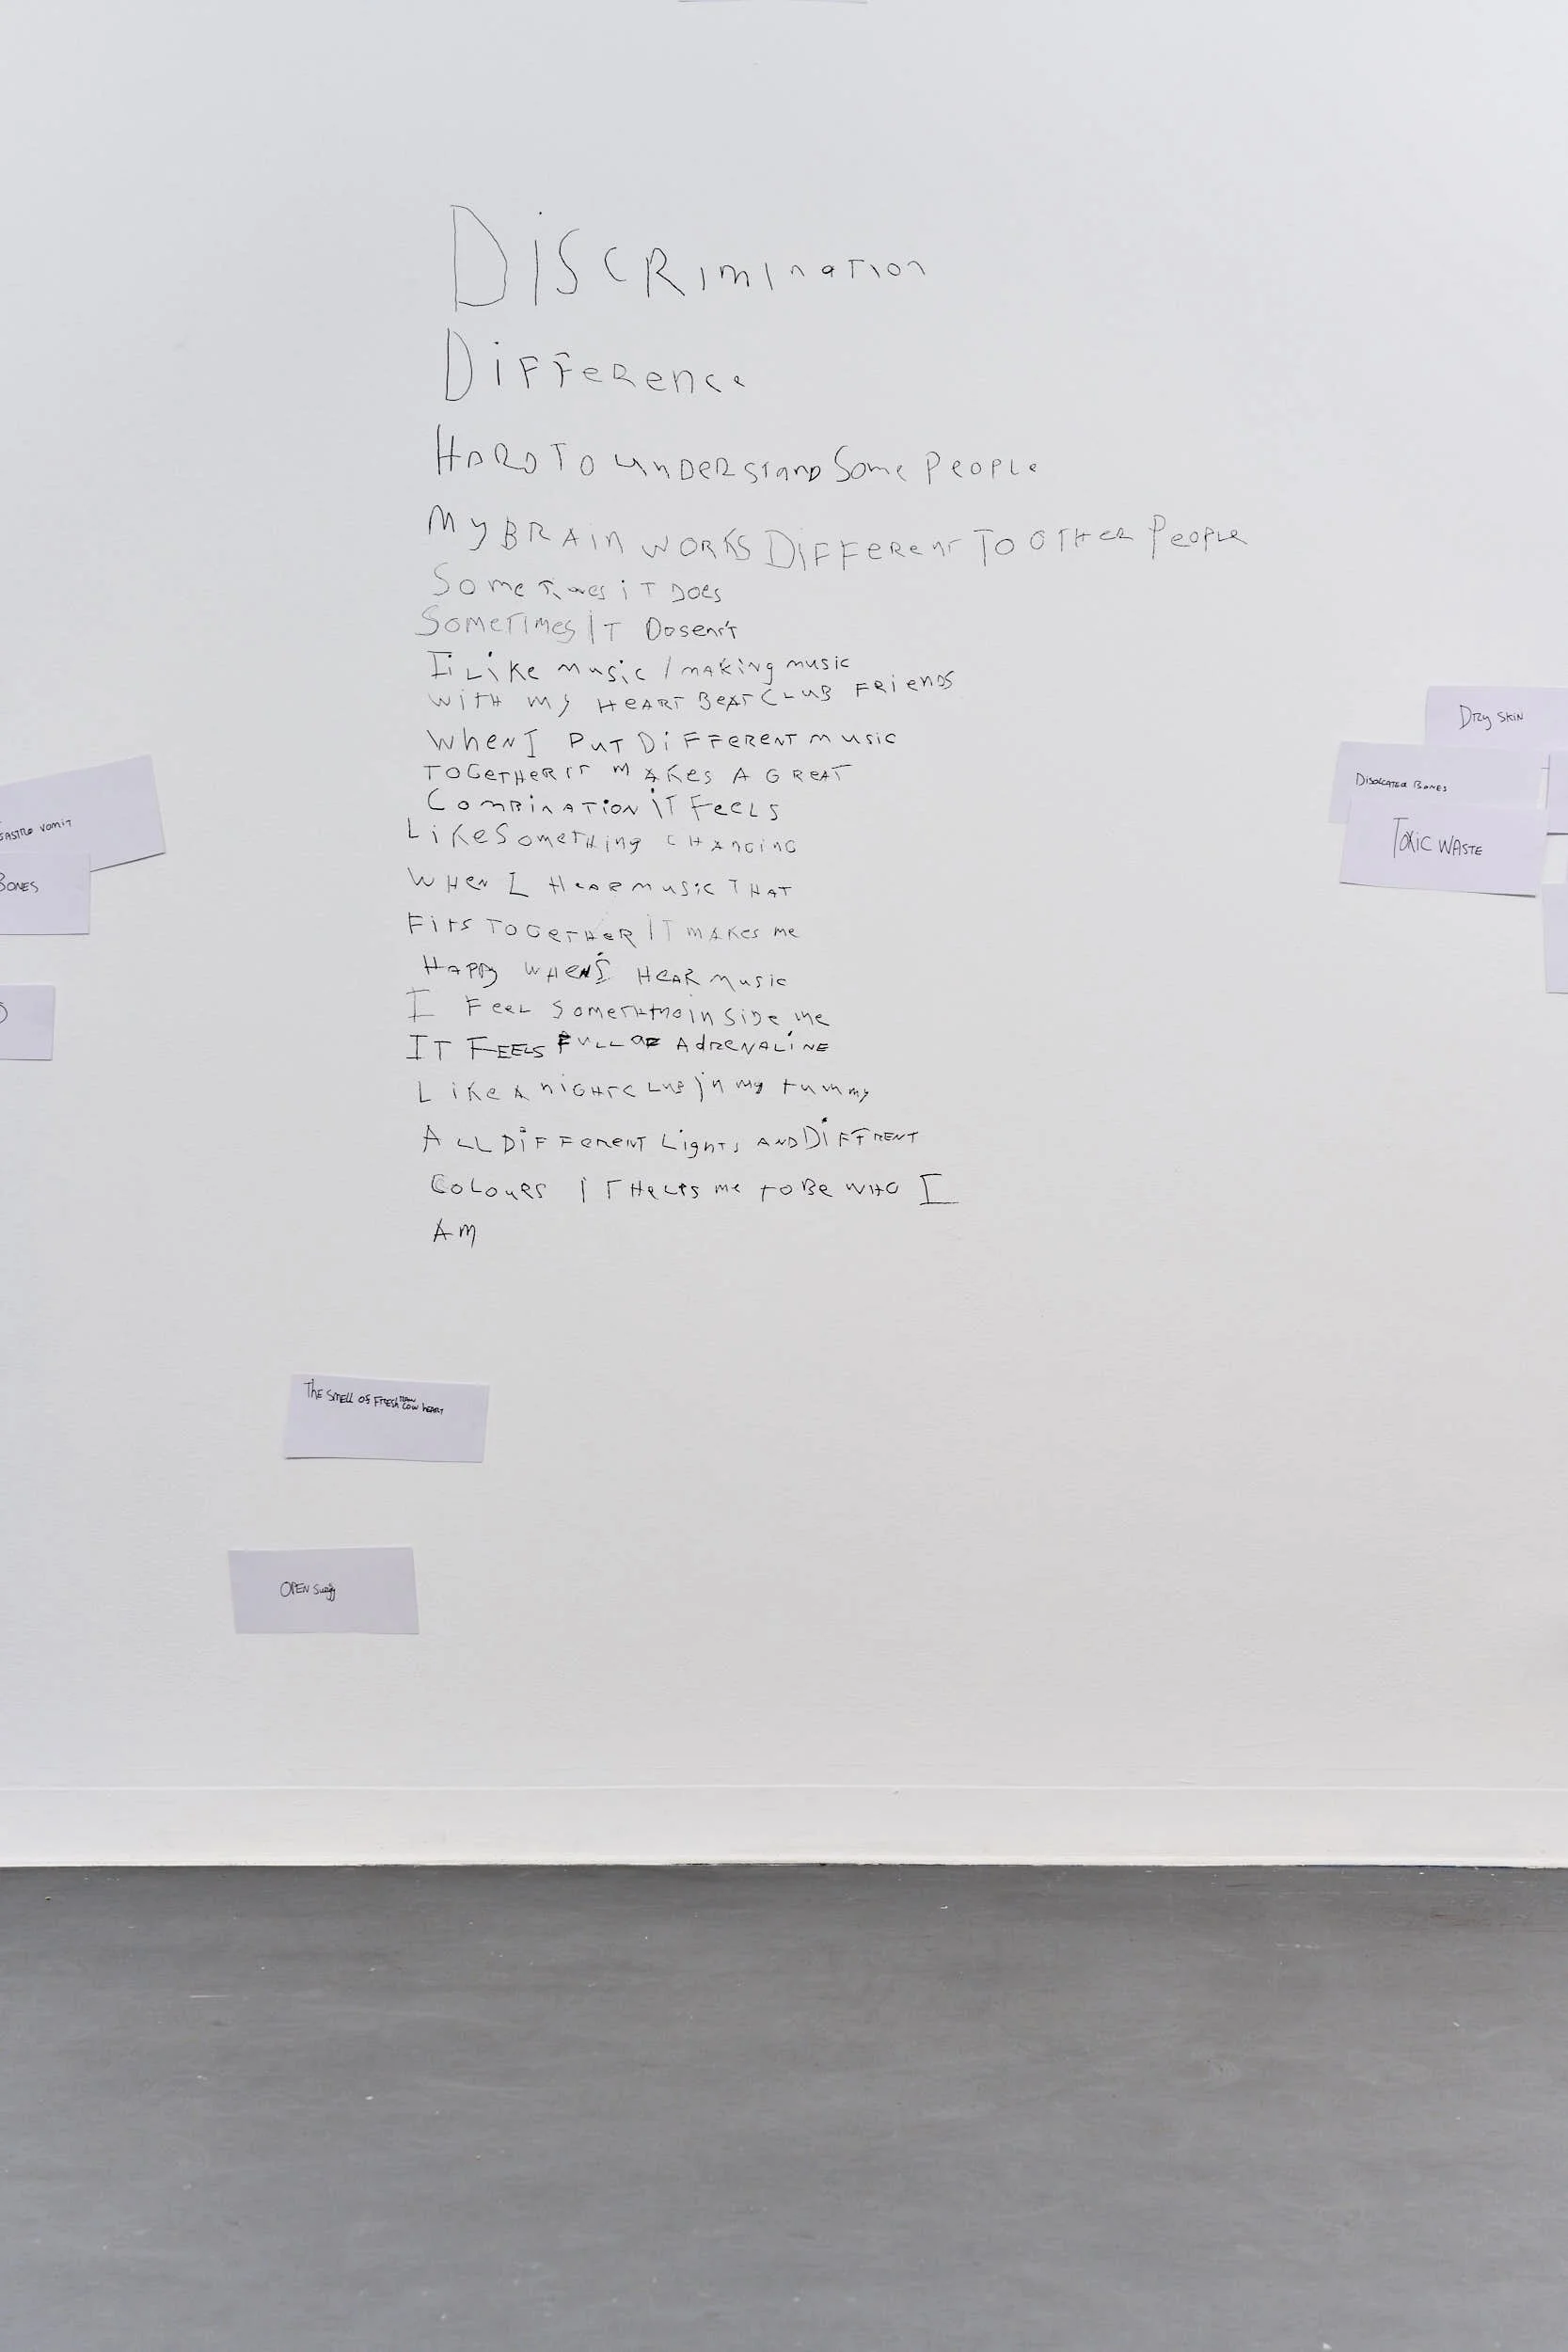 DiSCRimination
DiFFeRence
HARD TO unDeRSTanD Some PeoPLe
My BRAin WORKS DiFFeRenT To OTHeR PeoPLe
SomeTimes iT Does
SomeTimes IT Dosen't
I LiKe music / mAKing music
WiTH my HeART BeAT CLuB FRienDS
WheN I PuT DiFFeRENT music
ToGeTHeR iT mAKes A GReAT
ComBinATioN iT FeeLS
LiKe SomeTHing CHAnGinG
WHeN I HeAR music THAT
FiTs ToGeTHeR IT mAKes me
HAPPy WHeN I HeAR music
I FeeL inSiDe me
IT FEELS FuLL OF AdReNALiNE
LiKe A niGHTCLuB in my tummy
ALL DiFFeReNT LighTs AND DiFFRENT
CoLouRS iT HeLPs me to Be WHO I
Am
GASTRO VomiT
BONES
DRy SKiN
DiSOLCATED BONES
TOXiC WASTE
ThE SmEll OF FRESH COW HEART
OPEN